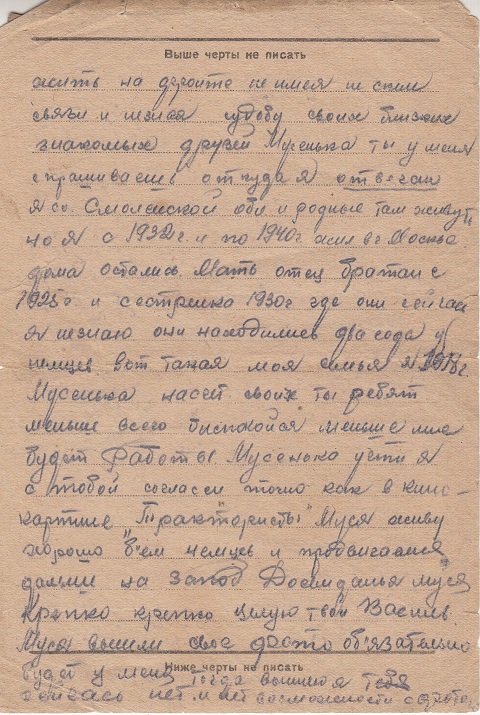 Выше черты не писать
жить на фронте не имея не с кем
связи и незная судьбу своих близких
знакомых друзей Мусенька ты у меня
спрашиваешь откуда я отвечаю
я со. Смоленской обл. и родные там живут
но я с 1932 г. и по 1940 г. жил в Москве
дома остались мать отец братан с
1925 г. и сестренка 1930 г где они сейчас
я незнаю они находились два года у
немцев вот такая моя семья я 1918 г.
Мусенька насчет своих ты ребят
меньше всего биспокойся меньше мне
будет работы. Мусенька учти я
с тобой согласен точно как в кино-
картине "Трактористы" Муся живу
хорошо бьем немцев и продвигаемся
дальше на запод Досвиданья муся
Крепко крепко целую твой Василь.
Муся вышли свое фото об'язательно
Ниже черты не писать
будет у меня тогда вышлю я тебе
сейчас нет возможности